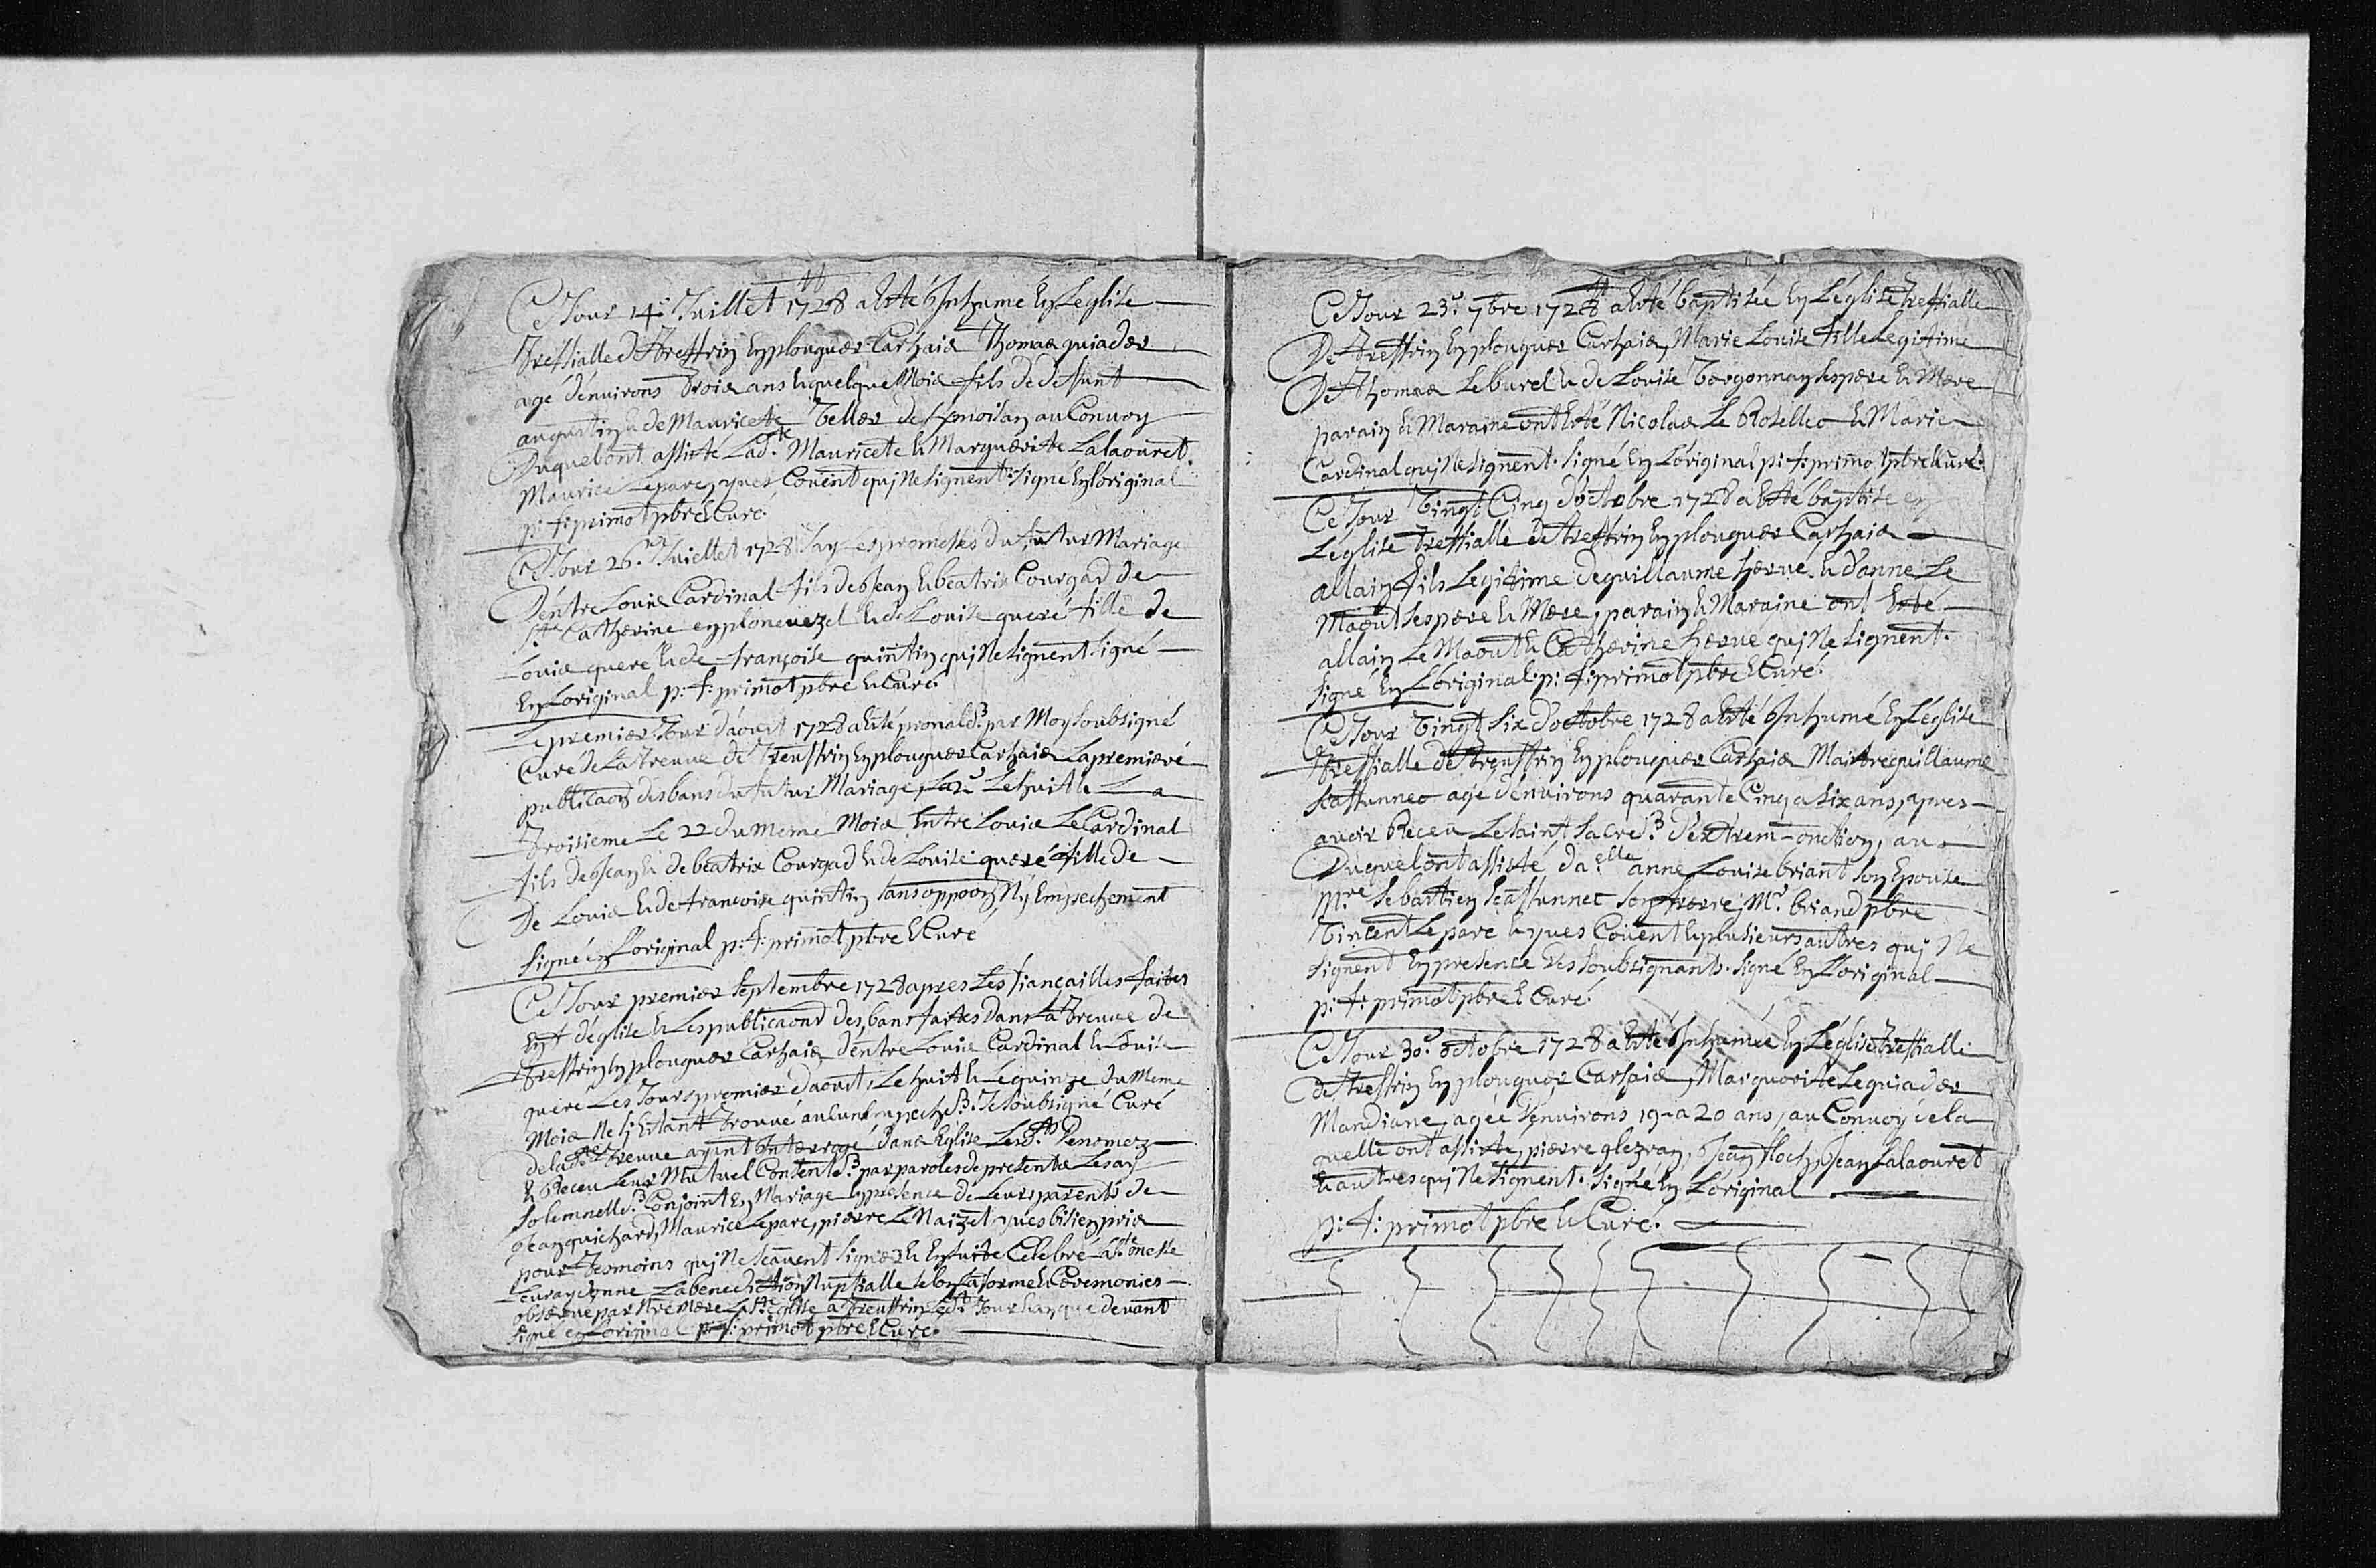 Ce Jour 14e Juillet 1728 a Esté Inhumé En Leglise
treffialle de treffrin En plouguer Carhaix Thomas quiader
agé d'environs trois ans et quelque Mois fils de deffunt
augustin et de Mauricete Teller de au Convoy
Duquel ont assisté Lad.te Mauricete et Marguerite Lalaouret
Maurice Leparc, yves Covent quj Ne signent. signé En Loriginal
p: f: primot pbre et Curé.
Ce Jour 26.me Juillet 1728 Jay pris Les promesses du futur Mariage
D'entre Louis Cardinal fils de Jean et beatrix Courgad de
ste Catherine en plonevezel et de Louise queré fille de
Louis queré et de françoise quintin quj Ne signent signé
En Loriginal p: f: primot pbre et Curé.
Le premier Jour d'aoust 1728 a Esté pronalsé par Moy soubsigné
Curé de La treuue de treuffrin En plouguer Carhaix La premiere
publicaon des bans du futur Mariage, La 2e Le huit et La
troisieme Le 22 du meme Mois Entre Louis Le Cardinal
fils de Jean et de beatrix Courgad et de Louise queré fille de
De Louis et de francoise quintin sans oppoon Ny Empechement
signé en Loriginal p: f: primot pbre et Curé
Ce Jour premier septembre 1728 apres Les fiançailles faites
En st d'eglise et Les publicaons des bans faites dans La treuue de
treffrin En plouguer Carhaix d'entre Louis Cardinal et Louise
queré Les Jours premier d'aoust, Le huit et Le quinze du Meme
Mois Ne sy Estant trouvé aulcun Empeche.t Je soubsigné Curé
de lad.te treuue ayant Interrogé dans Eglise Lesd.ts Denomez
et Receu Leur Mutuel Consente.t par paroles de presents Les ay
solemnelle.t Conjoint En Mariage En presence de Leurs parents de
Jean guichard, Maurice Leparc, pierre Le Naizet yves bisien pris
pour tesmoins quj Ne scauent signer et Ensuite Celebré La ste messe
Leur ay donné La benediction Nuptialle selon La forme et Ceremonies
observé par Nre Mere La ste Eglise a treuffrin Led.t Jour et an que devant
signé en Loriginal p: f: primot pbre et Curé.
Ce Jour 23.e 7bre 1728 a Esté baptisée En Léglise treffialle
De treffrin En plouguer Carhaix, Marie Louise fille Legitime
De Thomas Le burel et de Louise Torgonnay ses pere et Mere
parain et Maraine ont Esté Nicolas Le Rosellec et Marie
Cardinal quj Ne signent. signé En Loriginal p: f: primo t pbre et Curé.
Ce Jour Vingt Cinq d'octobre 1728 a Esté baptisé en
Léglise treffialle de treffrin En plouguer Carhaix
allain fils Legitime de guillaume herve et d'anne Le
Maout ses pere et Mere, parain et Maraine ont Esté
allain Le Maout et Catherine herve quj Ne signent.
signé En Loriginal. p: f: primot pbre et Curé.
Ce Jour Vingt six d'octobre 1728 a Esté Inhumé En Léglise
treffialle de treuffrin En plouguer Carhaix Maitre guillaume
scattunnec agé d'environs quarante Cinq a six ans, apres
avoir Receu Le saint sacre.t d'extrem-onction, au
Duquel ont assisté da.elle anne Louise briant son Epouse
M.re sebastien scattunnec son frere, M.r briand pbre
Vincent Leparc et yves Covent et plusieurs autres quj Ne
signent En presence des soubsignants. signé En Loriginal
p: f: primot pbre et Curé.
Ce Jour 30.e octobre 1728 a Esté Inhumée En Léglise treffialle
de treffrin En plouguer Carhaix, Marguerite Le quiader
Mandiane, agée d'environs 19 a 20 ans, au Convoy de la
quelle ont assisté, pierre glezran, Jean floch, Jean Lalaouret
et autres quj Ne signent. signé En Loriginal
p: f: primot pbre et Curé.